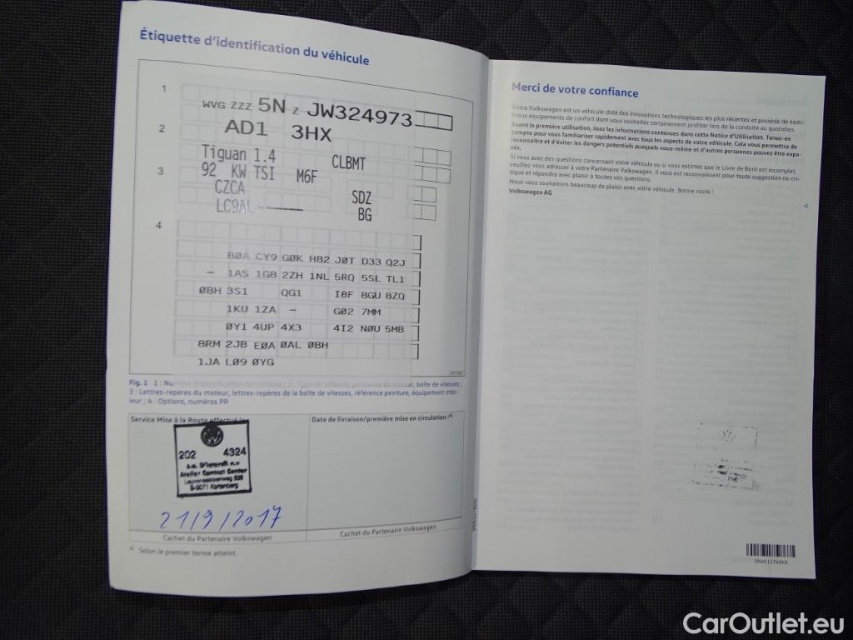 Étiquette d'identification du véhicule
1
WVG ZZZ 5N Z JW324973
2
AD1 3HX
Tiguan 1.4 CLBMT
3
92 KW TSI M6F
CZCA SDZ
LC9A BG
4
B0A CY9 G0K H82 J0T D33 Q2J
- 1AS 1G8 2ZH 1NL 5RQ 5SL TL1
0BH 3S1 QG1 I8F 8GU 8ZQ
1KU 1ZA - G02 7MM
0Y1 4UP 4X3 4I2 N0U 5MB
8RM 2JB E0A 0AL 0BH
1JA L09 0YG
Fig. 1 1 : boîte de vitesses ;
3 : Lettres-repères du moteur, lettres-repères de la boîte de vitesses, référence peinture, équipement intér-
ieur ; 4 : Options, numéros PR
Service Mise à la Route effectué le
Date de livraison/première mise en circulation
202 4324
Atelier Contact Center
21/9/2017
Cachet du Partenaire Volkswagen
Cachet du Partenaire Volkswagen
Selon le premier terme atteint.
Merci de votre confiance
Votre Volkswagen est un véhicule doté des innovations technologiques les plus récentes et possède de nom-
breux équipements de confort dont vous souhaitez certainement profiter lors de la conduite au quotidien.
Avant la première utilisation, lisez les informations contenues dans cette Notice d'Utilisation. Tenez-en
compte pour vous familiariser rapidement avec tous les aspects de votre véhicule. Cela vous permettra de
reconnaître et d'éviter les dangers potentiels auxquels vous-même et d'autres personnes pouvez être expo-
sés.
Si vous avez des questions concernant votre véhicule ou si vous estimez que le Livre de Bord est incomplet,
veuillez vous adresser à votre Partenaire Volkswagen. Il vous est reconnaissant pour toute suggestion ou cri-
tique et répondra avec plaisir à toutes vos questions.
Nous vous souhaitons beaucoup de plaisir avec votre véhicule. Bonne route !
Volkswagen AG
CarOutlet.eu